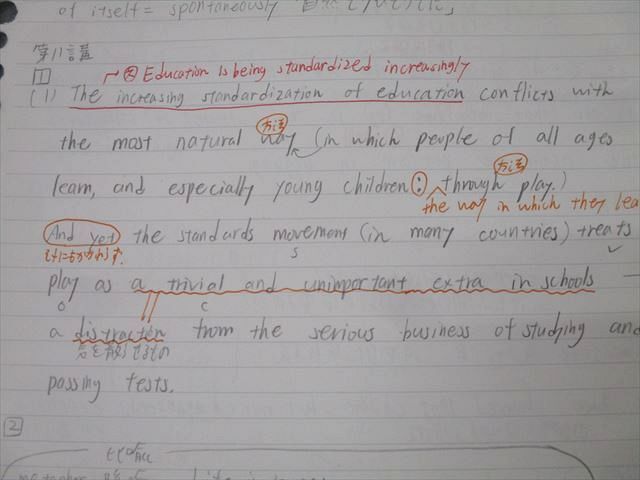 of itself = spontaneously
第11講
1
文 Education is being standardized increasingly
(1) The increasing standardization of education conflicts with
方法
the most natural way (in which people of all ages
方法
learn, and especially young children : through play.)
the way in which they lea
And yet the standards movement (in many countries) treats
S
V
play as a trivial and unimportant extra in schools —
O
C
a distraction from the serious business of studying and
passing tests.
2